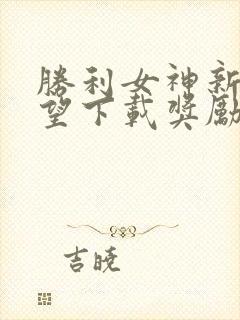 勝利女神新
望下載獎勵
吉曉